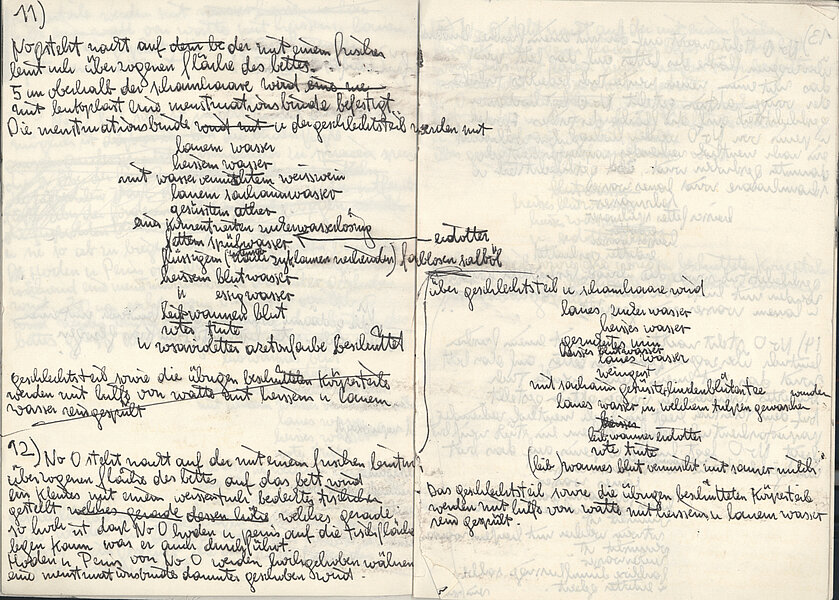 11)
No 0 steht nackt auf dem be der mit einem frischen
leintuch überzogenen fläche des bettes.
5 cm oberhalb der schamhaare wird eine me
mit leukoplast eine menstruationsbinde befestigt
Die menstruationsbinde wird mit u der geschlechtsteil werden mit
lauem wasser
heissem wasser
mit wasser vermischtem weisswein
lauem sacharinwasser
gesüssten äther
ein zuckerwasserlösung
fettem spülwasser
eidotter
flüssigem (nach zyklamen riechendes) farblosen salböl
heissem blutwasser
u essigwasser
leibwarmen blut
roter tinte
u rosavioletter acetonfarbe beschüttet
geschlechtsteil sowie die übrigen beschütteten körperteile
werden mit hilfe von watte mit heissem u lauem
wasser reingespült
12) No 0 steht nackt auf der mit einem frischen leintuch
überzogenen fläche des bettes auf das bett wird
ein kleines mit einem weisstuch bedecktes tischchen
gestellt welches gerade dessen höhe welches gerade
so hoch ist dass No 0 hoden u penis auf die tischfläche
legen kann was er auch durchführt.
Hoden u Penis von No 0 werden hochgehoben während
eine menstruationsbinde darunter geschoben wird.
über geschlechtsteil u schamhaare wird
laues zuckerwasser
heisses wasser
heisses blutwasser
laues wasser
weingeist
mit sacharin gesüsster lindenblütentee
laues wasser in welchem tulpen gewaschen wurden
heisses
leibwarmer eidotter
rote tinte
(leib) warmes blut vermischt mit saurer milch
Das geschlechtsteil sowie die übrigen beschütteten körperteile
werden mit hilfe von watte mit heissem u lauem wasser
rein gespült.